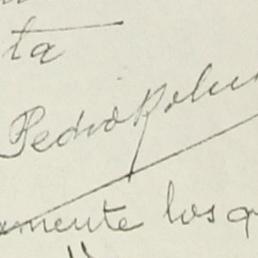 ta
Pedro
amente los q